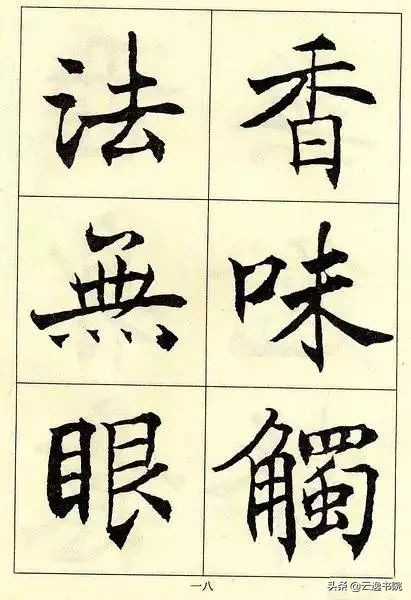 香味觸
法無眼
一八
头条 @云逸书院